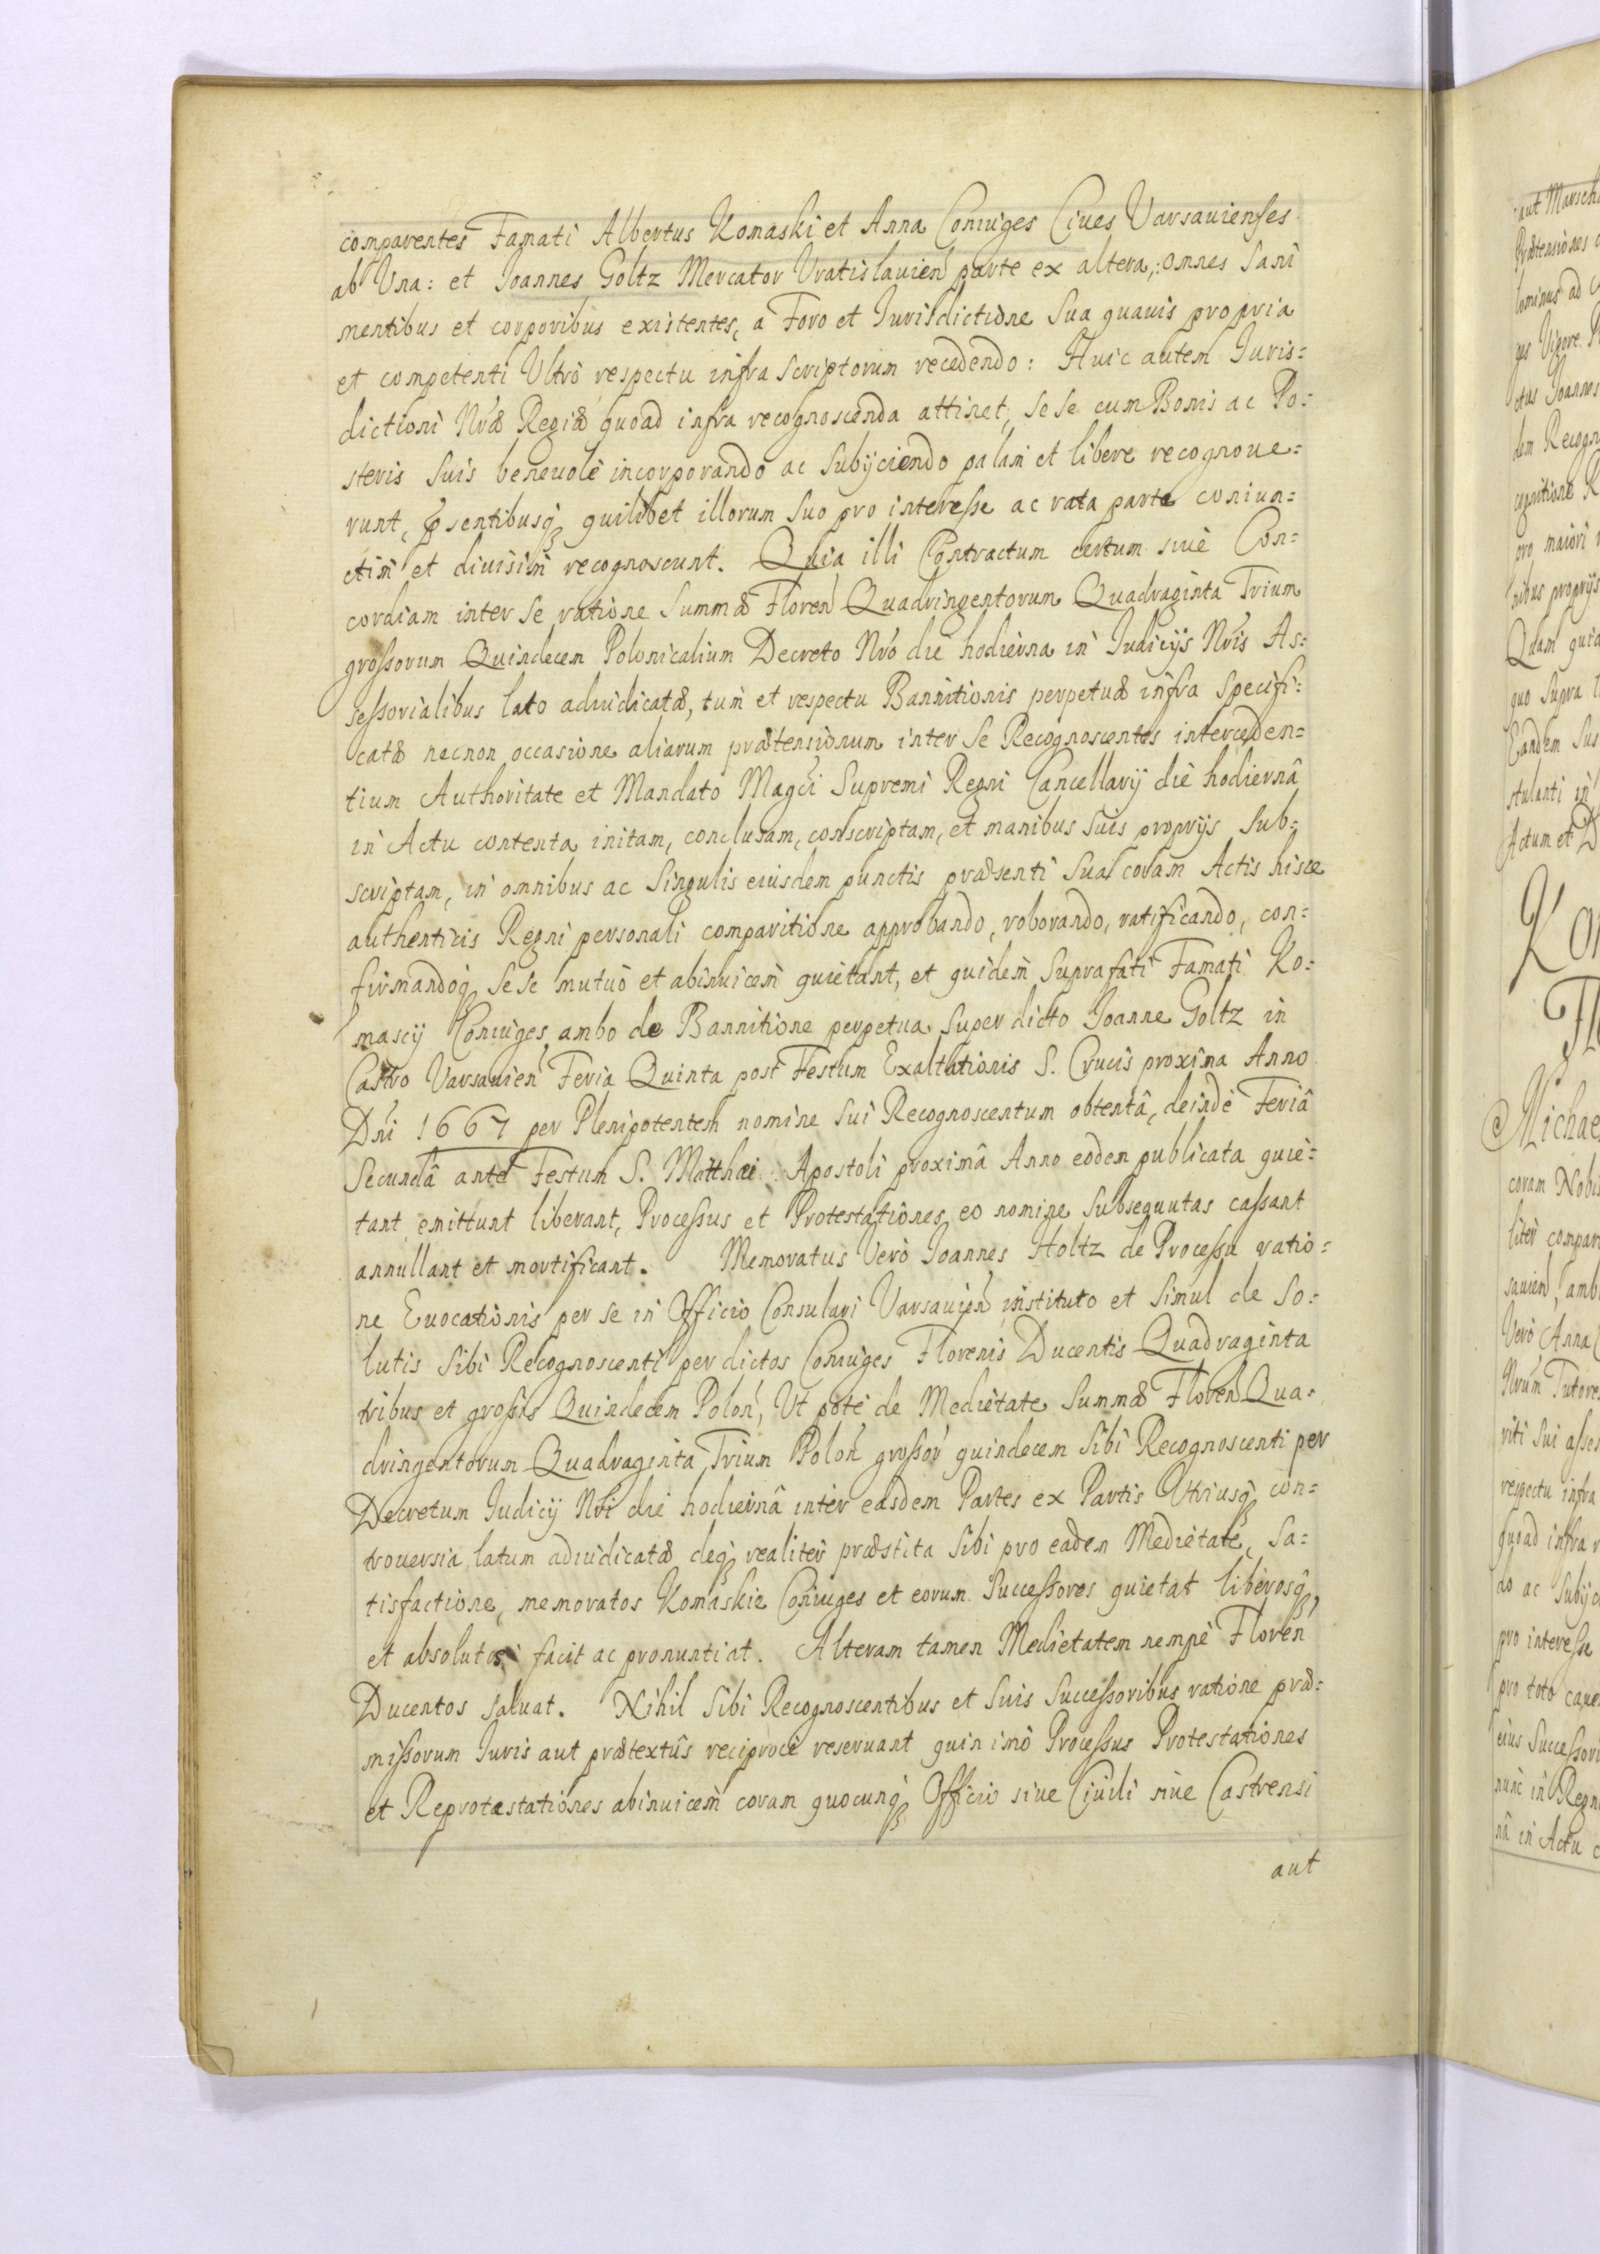 comparentes Famati Albertus Komaski et Anna Coniuges Ciues Varsauienses
ab Una: et Joannes Goltz Mercator Vratislauien parte ex altera, omnes sani
mentibus et corporibus existentes, a Foro et Jurisdictione sua quauis propria
et competenti Ultrò respectu infra scriptorum recedendo: Huic autem Juris=
dictioni Nræ Regiæ quoad infra recognoscenda attinet, se se cum Bonis ac Po=
steris suis beneuolè incorporando ac subÿciendo palam et libere recognoue=
runt, psentibusq quilibet illorum suo pro interesse ac rata parte coniun=
ctim et diuisim recognoscunt. Quia illi Contractum certum siuè Con=
cordiam inter se ratione summæ Floren Quadringentorum Quadraginta Trium
grossorum Quindecem Polonicalium Decreto Nro die hodierna in Judicÿs Nris As=
sessorialibus lato adiudicatæ, tum et respectu Bannitionis perpetuæ infra specifi=
catæ necnon occasione aliarum prætensionum inter se Recognoscentes interceden=
tium Authoritate et Mandato Magci Supremi Regni Cancellarÿ die hodiernâ
in Actu contenta initam, conclusam, conscriptam, et manibus suis proprÿs sub=
scriptam, in omnibus ac singulis eiusdem punctis præsenti sua coram Actis hisce
authenticis Regni personali comparitione approbando, roborando, ratificando, con=
firmandoq se se mutuò et abinuicem quietant, et quidem suprafati Famati Ko=
mascÿ Coniuges ambo de Bannitione perpetua super dicto Joanne Goltz in
Castro Varsauien Feria Quinta post Festum Exaltationis S. Crucis proxima Anno
Dni 1667 per Plenipotentem nomine sui Recognoscentum obtentâ, deindè Feriâ
Secundâ ante Festum S. Matthæi Apostoli proximâ Anno eodem publicata quie=
tant, emittunt liberant, Processus et Protestationes eo nomine subsequutas cassant
annullant et mortificant. Memoratus Verò Joannes Holtz de Processu ratio=
ne Euocationis per se in Officio Consulari Varsauien instituto et simul de so=
lutis sibi Recognoscenti per dictos Coniuges Florenis Ducentis Quadraginta
tribus et grossis Quindecem Polon, Ut potè de Medietate summæ Floren Qua=
dringentorum Quadraginta Trium Polon grossor quindecem sibi Recognoscenti per
Decretum Judicÿ Nri die hodiernâ inter easdem Partes ex Partis Utriusq con=
trouersia latum adiudicatæ deq realiter præstita sibi pro eadem Medietate, sa=
tisfactione, memoratos Komaskie Coniuges et eorum successores quietat liberosq,
et absolutos facit ac pronuntiat. Alteram tamen Medietatem nempè Floren
Ducentos saluat. Nihil sibi Recognoscentibus et suis successoribus ratione præ=
missorum Juris aut prætextûs reciprocè reseruant quin imò Processus Protestationes
et Reprotestationes abinuicem coram quocunq Officio siue Ciuili siue Castrensi
aut